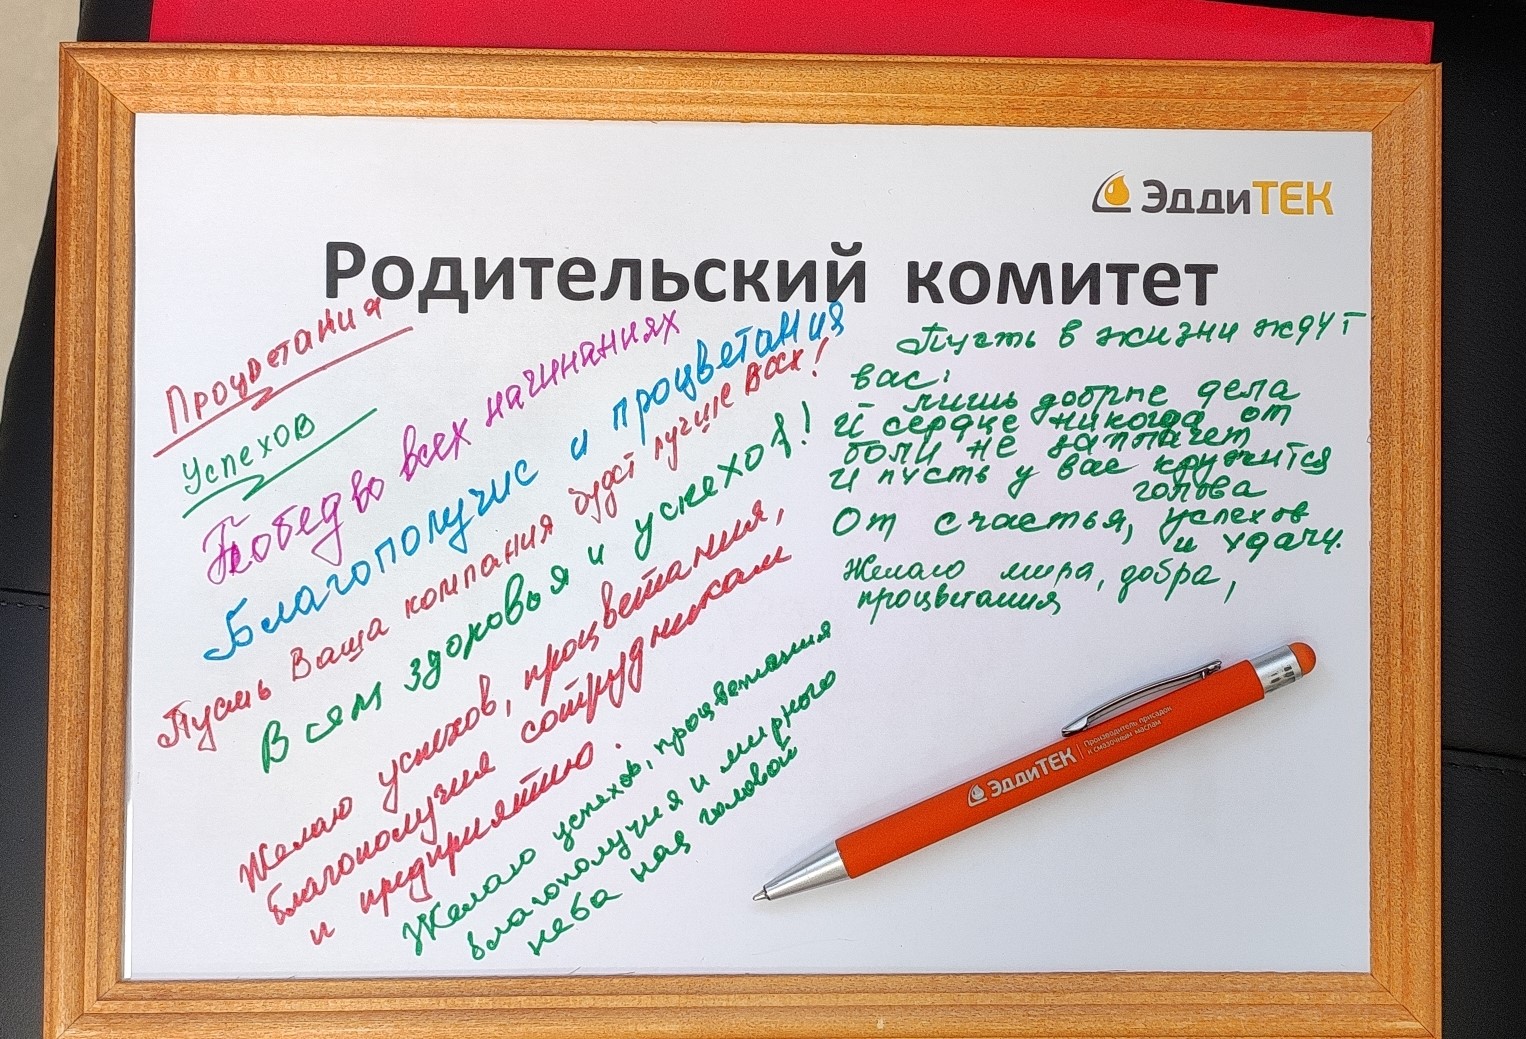 ЭддиТЕК
Родительский комитет
Процветания
Успехов
Побед во всех начинаниях
Благополучие и процветания
Пусть Ваша компания будет лучше всех!
Всем здоровья и успехов!
Желаю успехов, процветания,
благополучия сотрудникам
и предприятию.
Желаю успехов, процветания
благополучия и мирного
неба над головой
Пусть в жизни ждут
вас:
лишь добрые дела
И сердце никогда от
боли не заплачет
И пусть у вас кружится
голова
От счастья, успехов
и удачи.
Желаю мира, добра,
процветания
ЭддиТЕК
Производитель присадок
к смазочным маслам